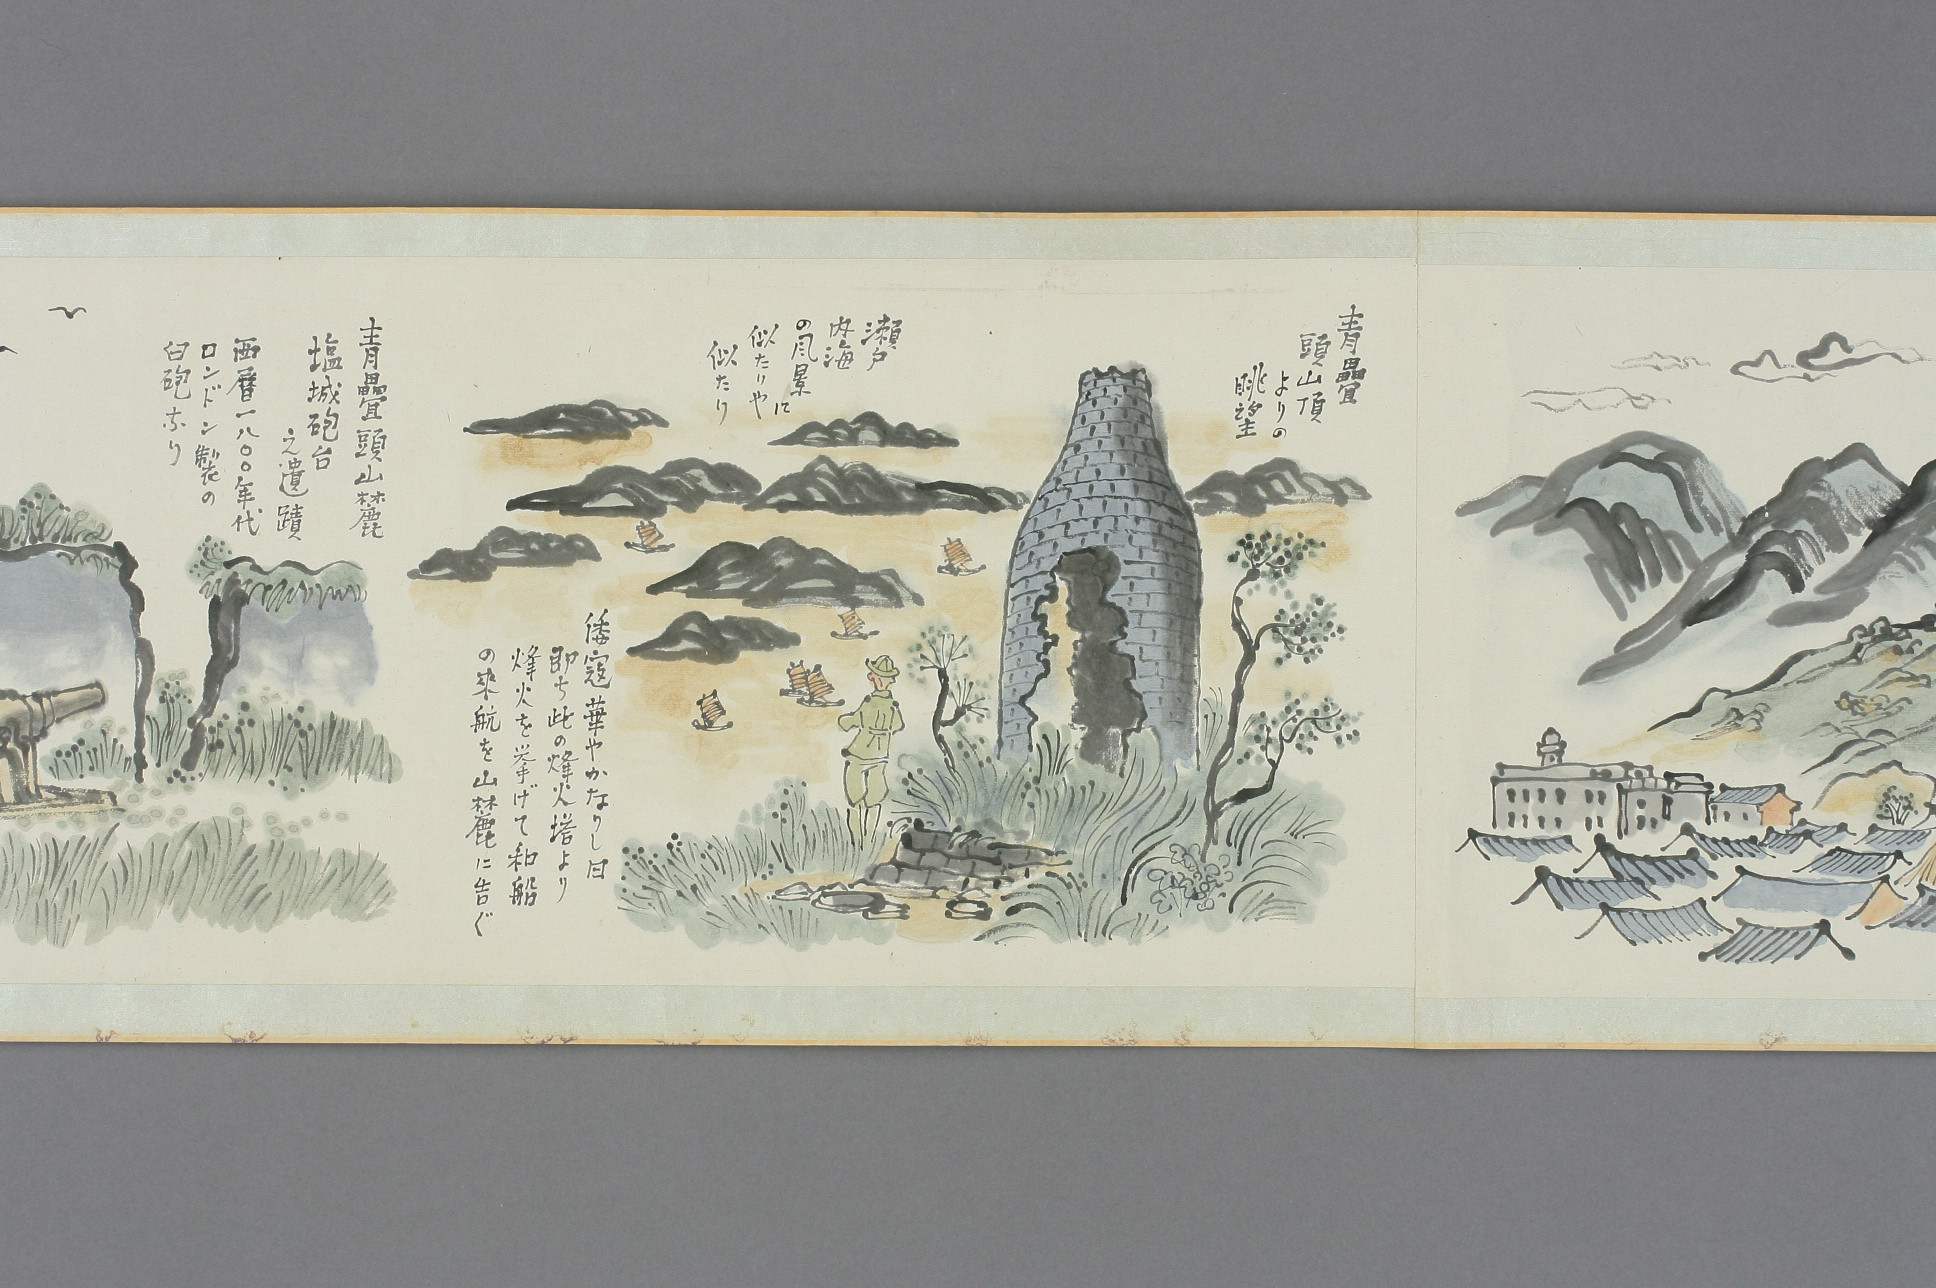 青罍
頭山頂
よりの
眺望
瀬戸
内海
の風景に
似たりや
似たり
倭寇華やかなりし日
即ち此の烽火塔より
烽火を挙げて和船
の来航を山麓に告ぐ
青罍頭山麓
塩城砲台
之遺蹟
西暦一八〇〇年代
ロンドン製の
臼砲なり